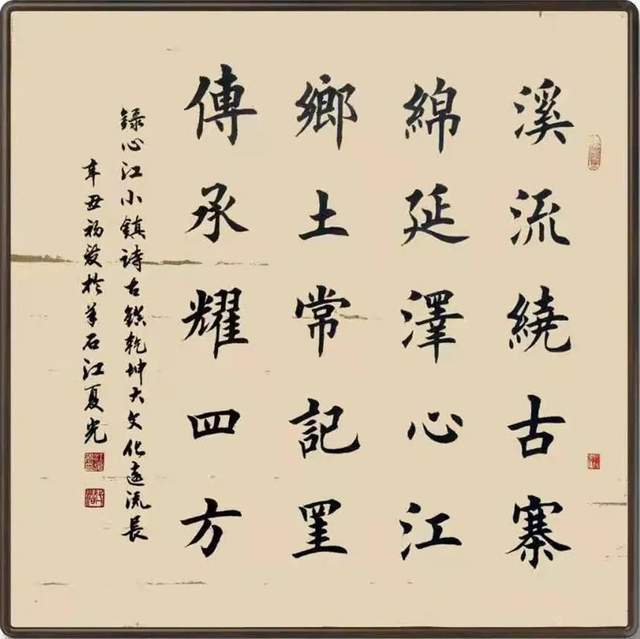 溪流繞古寨
綿延澤心江
鄉土常記罣
傳承耀四方
錄心江小鎮詩古鎮乾坤大文化遠流長
辛丑福發於羊石江夏光